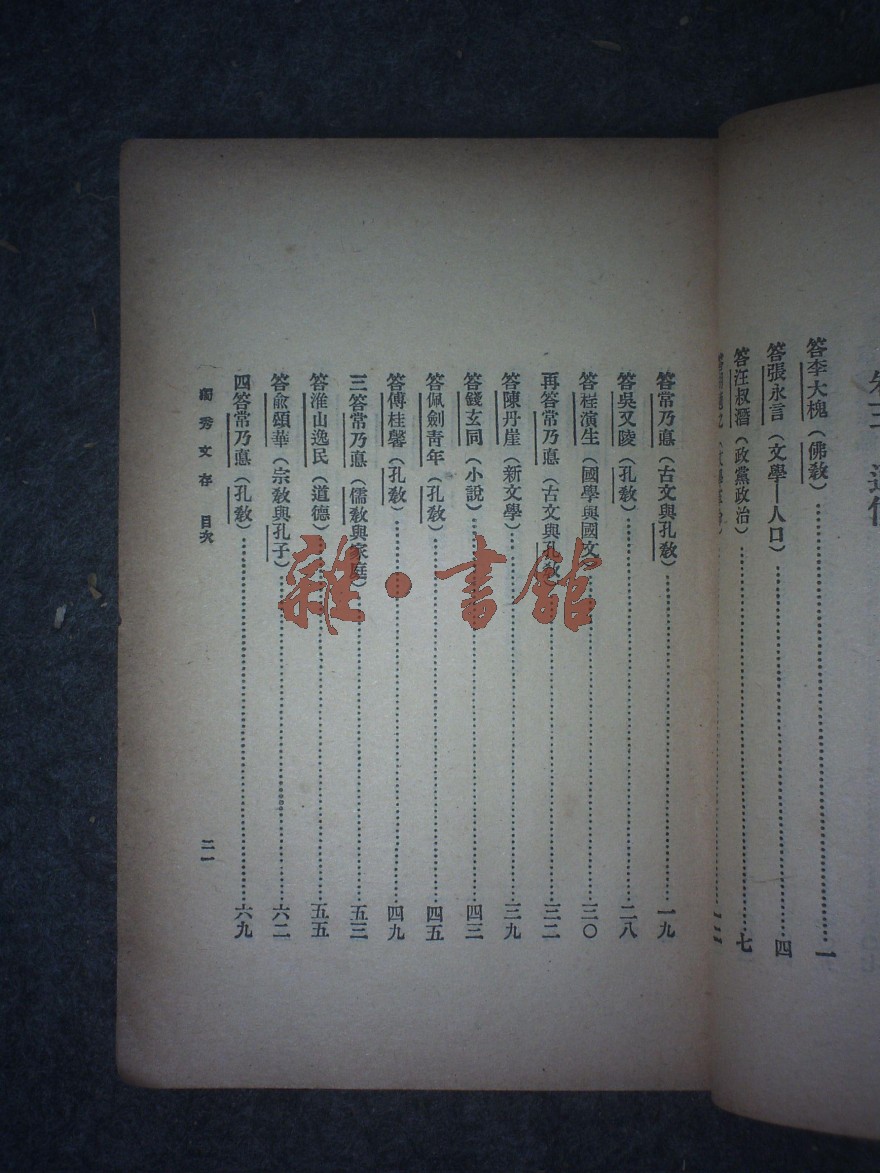 卷三 通信
答李大槐（佛教）⋯⋯一
答張永言（文學—人口）⋯⋯四
答汪叔潛（政黨政治）⋯⋯七
答常乃悳（古文與孔教）⋯⋯一九
答吳又陵（孔教）⋯⋯二八
答程演生（國學與國文）⋯⋯三〇
再答常乃悳（古文與孔教）⋯⋯三二
答陳丹崖（新文學）⋯⋯三九
答錢玄同（小說）⋯⋯四三
答佩劍青年（孔教）⋯⋯四五
答傅桂馨（孔教）⋯⋯四九
三答常乃悳（儒教與家庭）⋯⋯五三
答淮山逸民（道德）⋯⋯五五
答俞頌華（宗教與孔子）⋯⋯六二
四答常乃悳（孔教）⋯⋯六九
獨秀文存 目次 二一
雜·書館